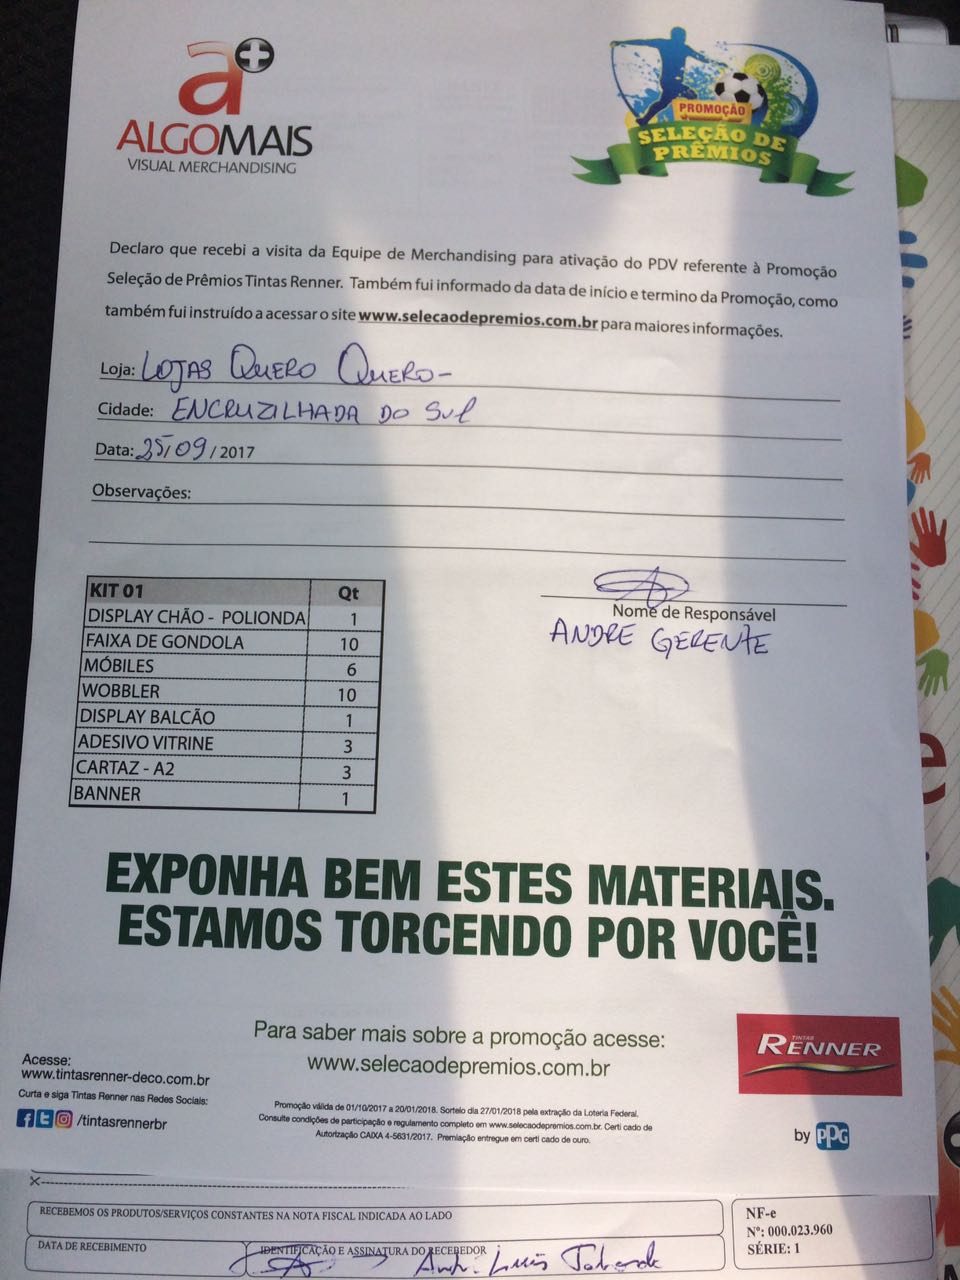 a+
ALGOMAIS
VISUAL MERCHANDISING
PROMOÇÃO
SELEÇÃO DE
PRÊMIOS
Declaro que recebi a visita da Equipe de Merchandising para ativação do PDV referente à Promoção
Seleção de Prêmios Tintas Renner. Também fui informado da data de início e termino da Promoção, como
também fui instruído a acessar o site www.selecaodepremios.com.br para maiores informações.
Loja: LOJAS QUERO QUERO-
Cidade: ENCRUZILHADA DO SUL
Data: 25/09/2017
Observações:
Nome de Responsável
ANDRE GERENTE
KIT 01 Qt
DISPLAY CHÃO - POLIONDA 1
FAIXA DE GONDOLA 10
MÓBILES 6
WOBBLER 10
DISPLAY BALCÃO 1
ADESIVO VITRINE 3
CARTAZ - A2 3
BANNER 1
EXPONHA BEM ESTES MATERIAIS.
ESTAMOS TORCENDO POR VOCÊ!
Para saber mais sobre a promoção acesse:
www.selecaodepremios.com.br
TINTAS
RENNER
Acesse:
www.tintasrenner-deco.com.br
Curta e siga Tintas Renner nas Redes Sociais:
/tintasrennerbr
Promoção válida de 01/10/2017 a 20/01/2018. Sorteio dia 27/01/2018 pela extração da Loteria Federal.
Consulte condições de participação e regulamento completo em www.selecaodepremios.com.br. Certi cado de
Autorização CAIXA 4-5631/2017. Premiação entregue em certi cado de ouro.
by PPG
RECEBEMOS OS PRODUTOS/SERVIÇOS CONSTANTES NA NOTA FISCAL INDICADA AO LADO
DATA DE RECEBIMENTO
IDENTIFICAÇÃO E ASSINATURA DO RECEBEDOR
NF-e
Nº: 000.023.960
SÉRIE: 1